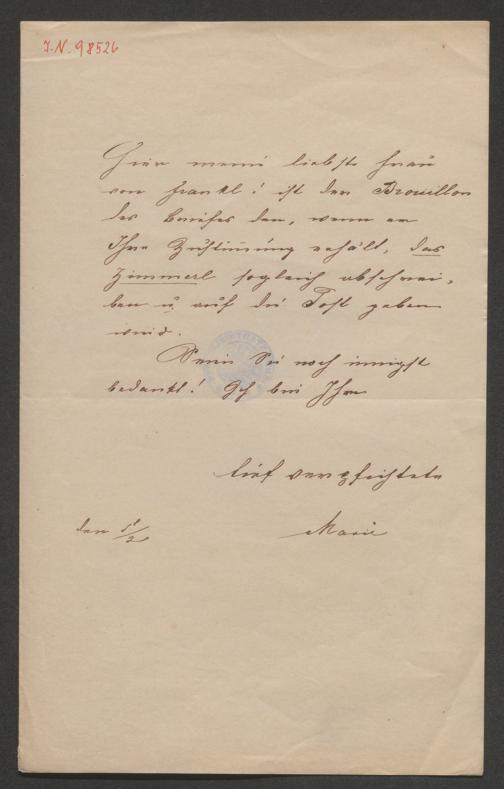 I.N. 98526
Hier meine liebste Frau
von Frankl! ist der Brouillon
des Briefes den, wenn er
Ihre Zustimung erhält, das
Zimmerl sogleich abschrei-
ben u. auf die Post geben
wird.
Seien Sie noch innigst
bedankt! Ich bin Ihre
tief verpflichtete
Marie
den 1/2